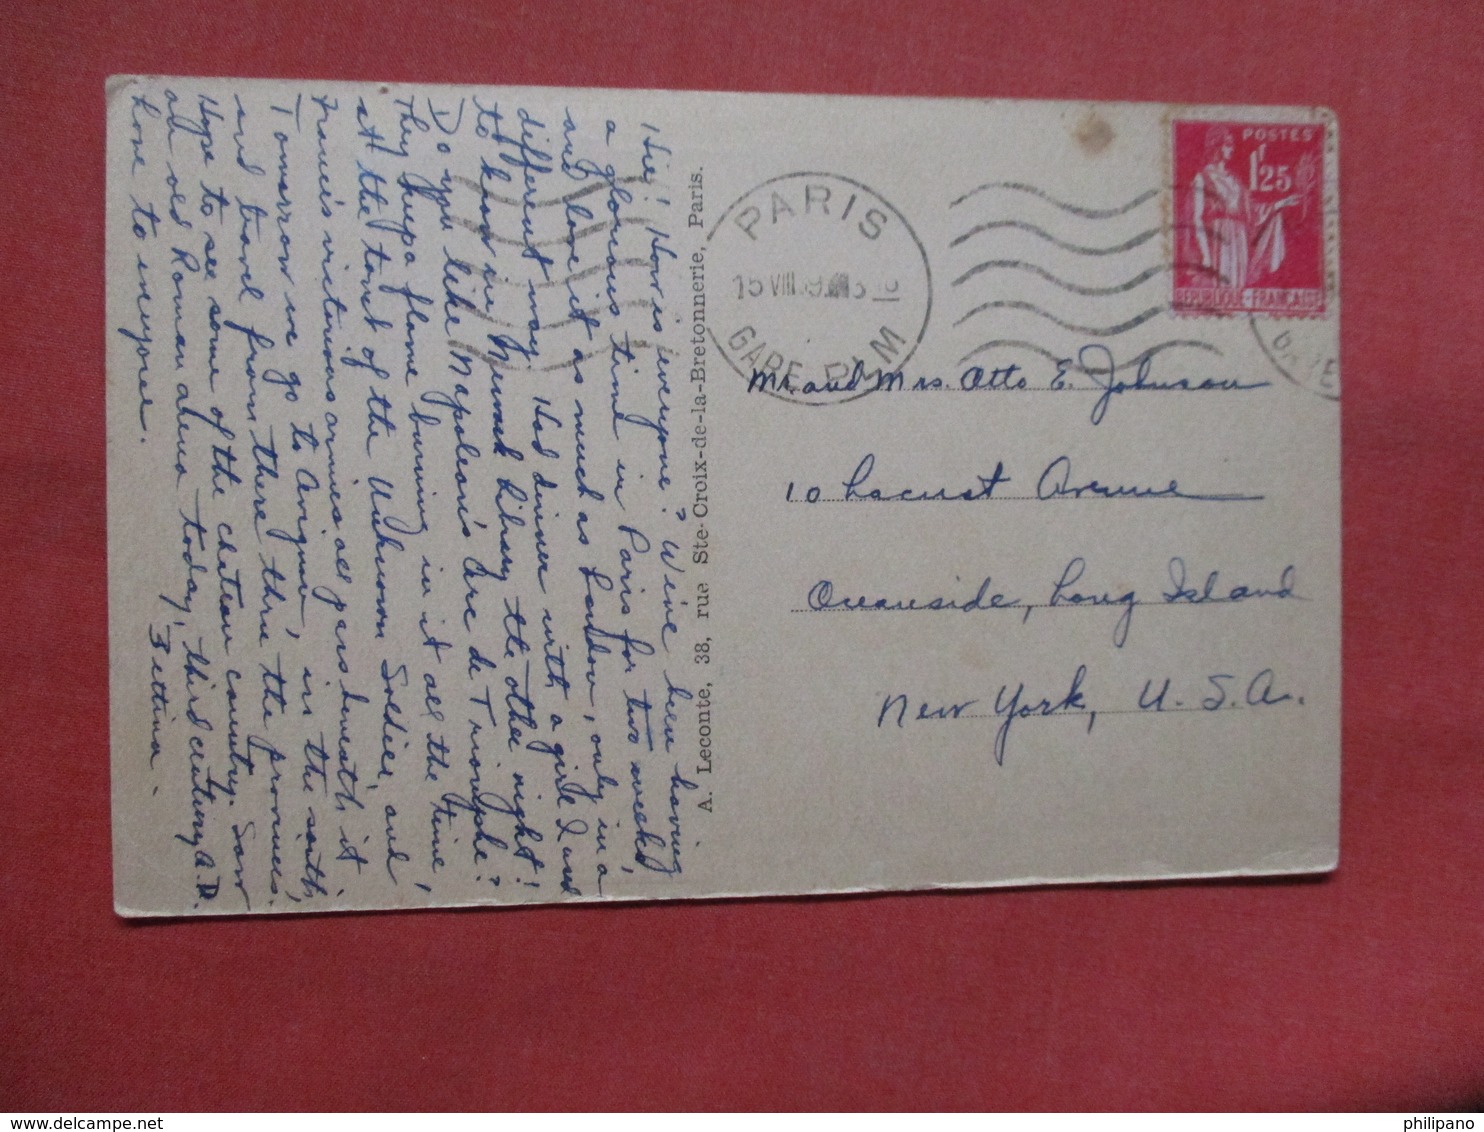 Hie! How is everyone? We've been having
a glorious time in Paris for two weeks,
and love it as much as London, only in a
different way. Had dinner with a girl I used
to know in Newark Library the other night!
Do you like Napoleon's Arc de Triomphe?
They keep a flame burning in it all the time,
at the tomb of the Unknown Soldier, and
France's victorious armies all pass beneath it.
Tomorrow we go to Avignon, in the south,
and travel from there thru the provinces.
Hope to see some of the chateau country. Saw
an old Roman arena today, third century A.D.
Love to everyone.
Bettina.
A. Leconte, 38, rue Ste-Croix-de-la-Bretonnerie, Paris.
PARIS
15 VIII
GARE P.L.M
POSTES
1F25
REPUBLIQUE-FRANÇAISE
Mr. and Mrs. Otto E. Johnson
10 Locust Avenue
Oceanside, Long Island
New York, U.S.A.
philipano